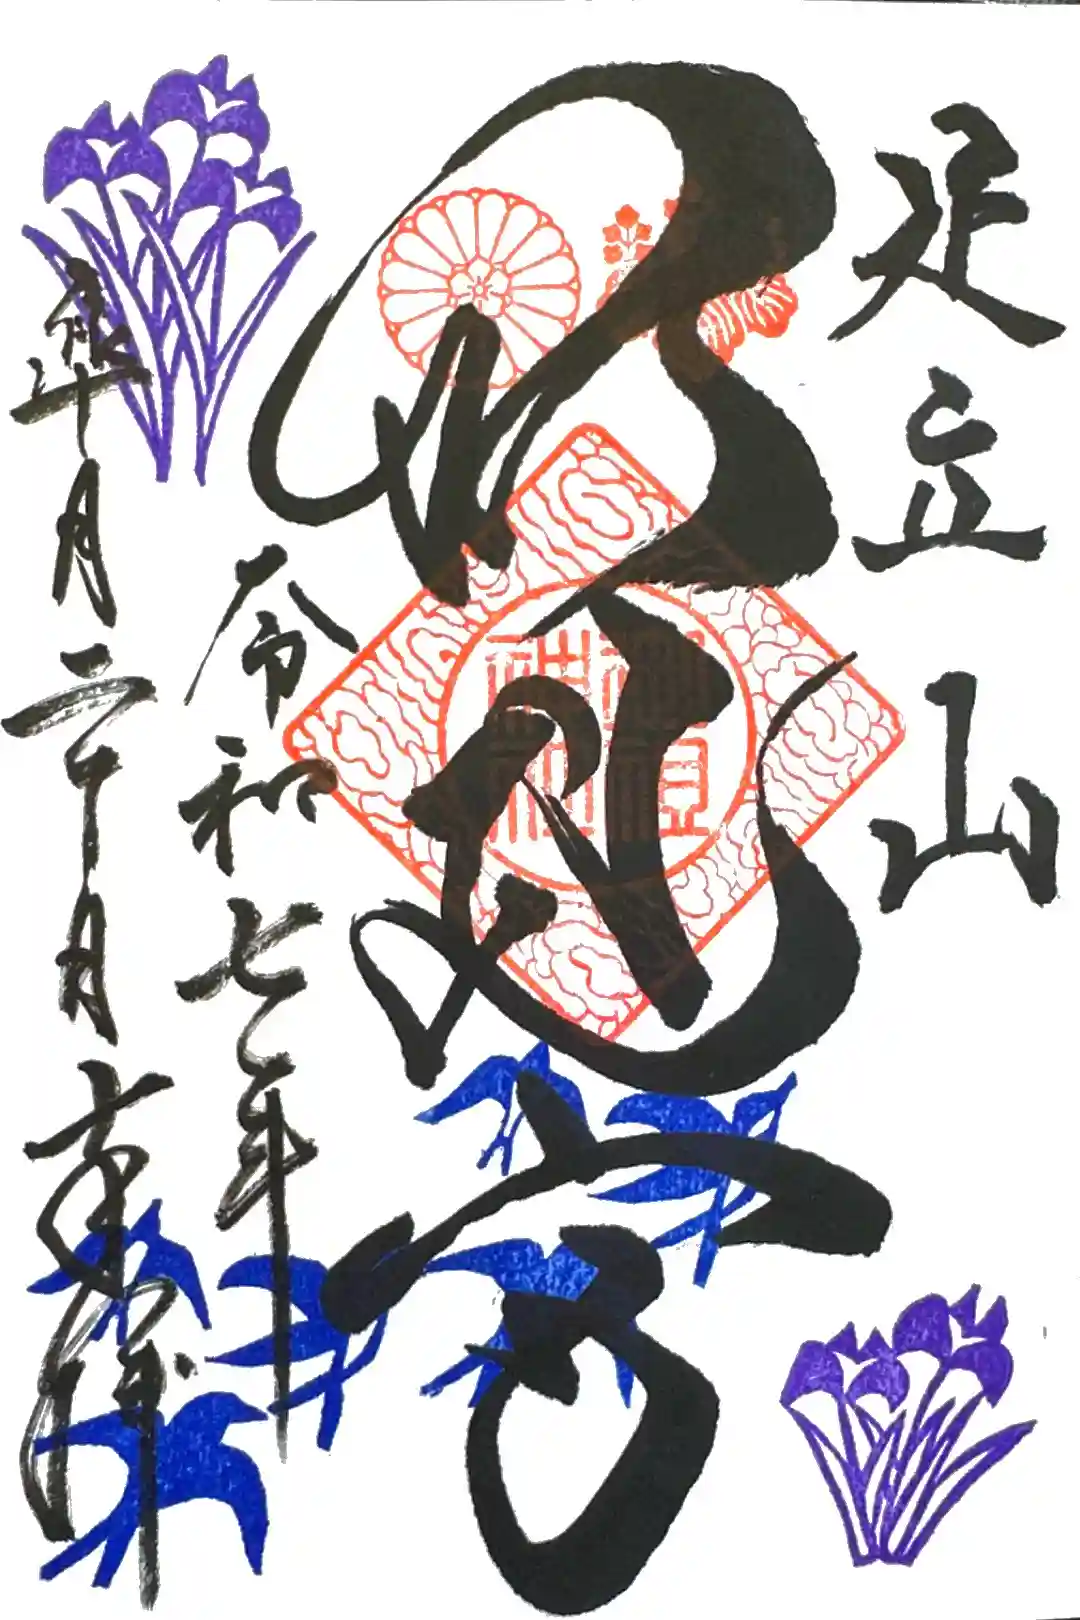 足立山
妙見宮
令和七年
月二十日奉拝